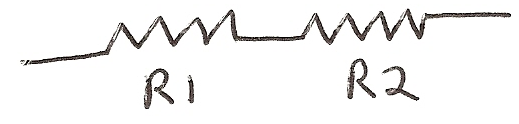 R1 R2